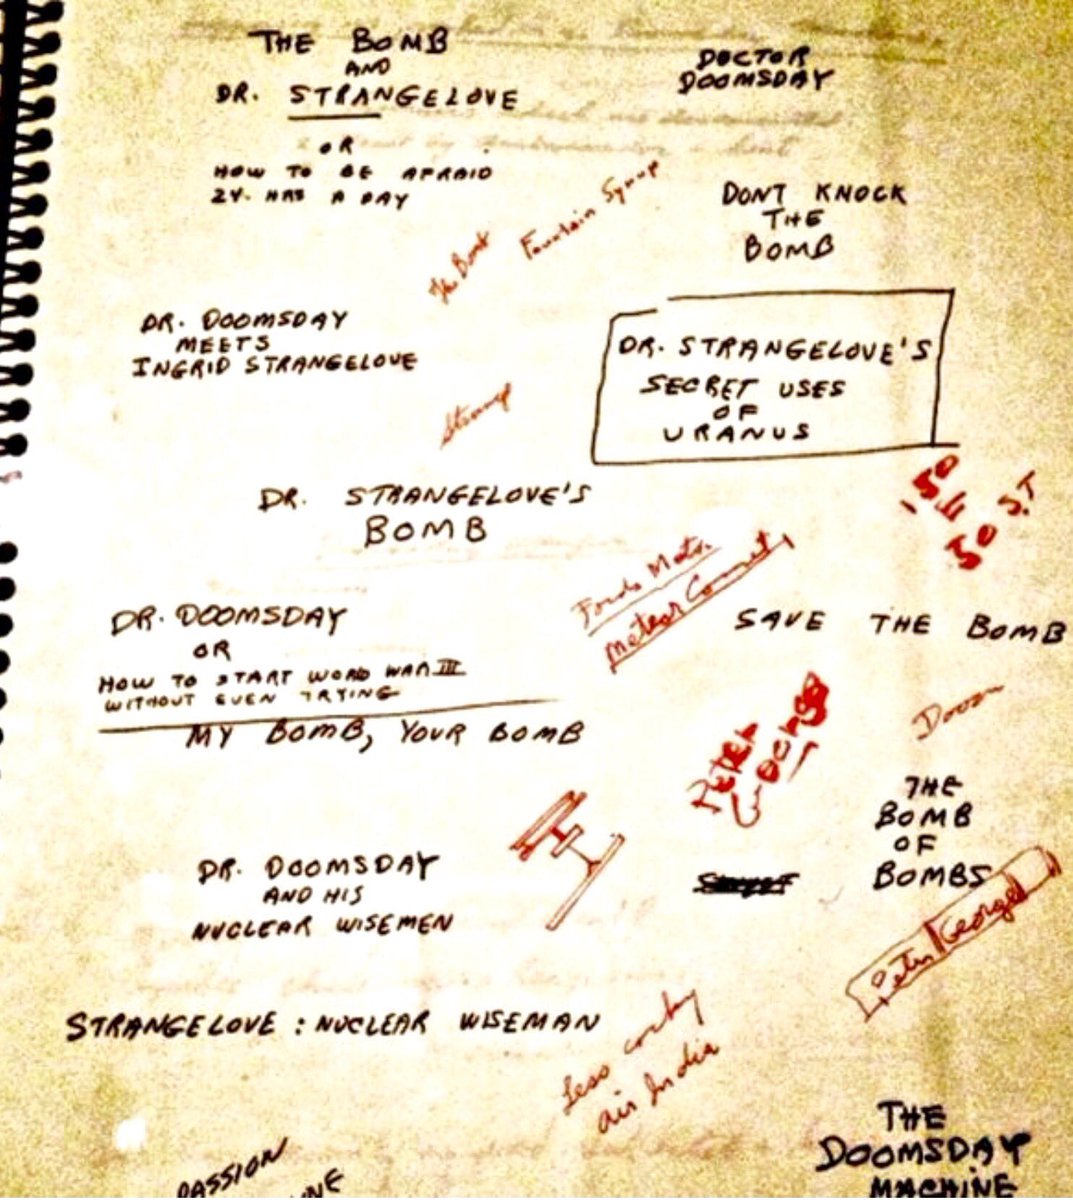 THE BOMB
AND
DR. STRANGELOVE
OR
HOW TO BE AFRAID
24 HRS A DAY
DOCTOR
DOOMSDAY
Fountain Syrup
The Bomb
DONT KNOCK
THE
BOMB
DR. DOOMSDAY
MEETS
INGRID STRANGELOVE
DR. STRANGELOVE'S
SECRET USES
OF
URANUS
DR. STRANGELOVE'S
BOMB
150
50 S.T
Meteor Comet
SAVE THE BOMB
DR. DOOMSDAY
OR
HOW TO START WORD WAR III
WITHOUT EVEN TRYING
MY BOMB, YOUR BOMB
Doom
PETER
THE
BOMB
OF
BOMBS
DR. DOOMSDAY
AND HIS
NUCLEAR WISEMEN
Peter George
STRANGELOVE : NUCLEAR WISEMAN
Less corky
air India
THE
DOOMSDAY
MACHINE
PASSION